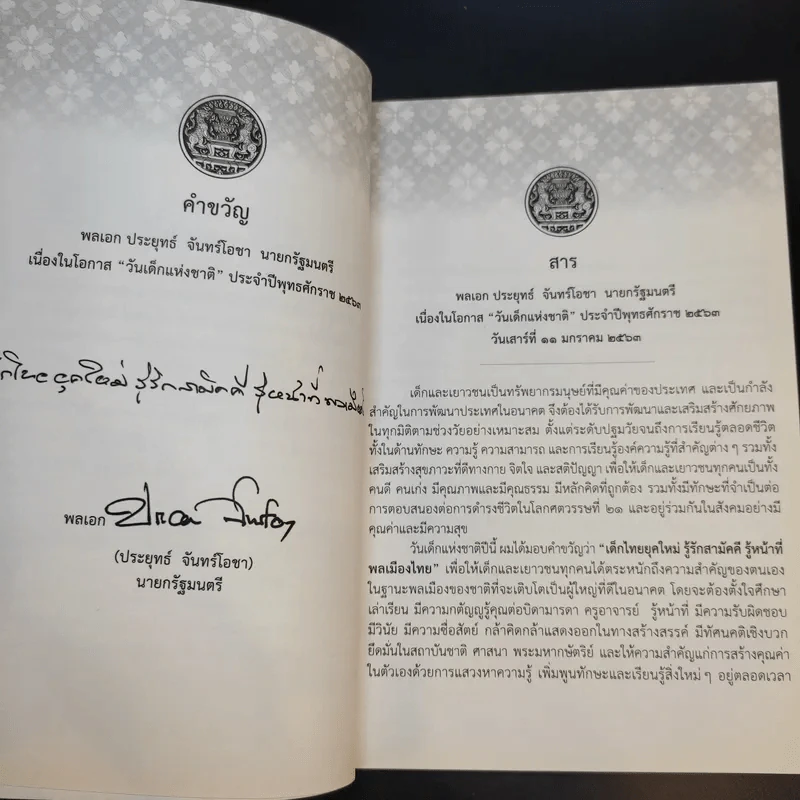 คำขวัญ
พลเอก ประยุทธ์ จันทร์โอชา นายกรัฐมนตรี
เนื่องในโอกาส “วันเด็กแห่งชาติ” ประจำปีพุทธศักราช ๒๕๖๓
ไทยยุคใหม่ รู้รักสามัคคี รู้หน้าที่ พลเมือง
พลเอก
(ประยุทธ์ จันทร์โอชา)
นายกรัฐมนตรี
สาร
พลเอก ประยุทธ์ จันทร์โอชา นายกรัฐมนตรี
เนื่องในโอกาส “วันเด็กแห่งชาติ” ประจำปีพุทธศักราช ๒๕๖๓
วันเสาร์ที่ ๑๑ มกราคม ๒๕๖๓
เด็กและเยาวชนเป็นทรัพยากรมนุษย์ที่มีคุณค่าของประเทศ และเป็นกำลัง
สำคัญในการพัฒนาประเทศในอนาคต จึงต้องได้รับการพัฒนาและเสริมสร้างศักยภาพ
ในทุกมิติตามช่วงวัยอย่างเหมาะสม ตั้งแต่ระดับปฐมวัยจนถึงการเรียนรู้ตลอดชีวิต
ทั้งในด้านทักษะ ความรู้ ความสามารถ และการเรียนรู้องค์ความรู้ที่สำคัญต่าง ๆ รวมทั้ง
เสริมสร้างสุขภาวะที่ดีทางกาย จิตใจ และสติปัญญา เพื่อให้เด็กและเยาวชนทุกคนเป็นทั้ง
คนดี คนเก่ง มีคุณภาพและมีคุณธรรม มีหลักคิดที่ถูกต้อง รวมทั้งมีทักษะที่จำเป็นต่อ
การตอบสนองต่อการดำรงชีวิตในโลกศตวรรษที่ ๒๑ และอยู่ร่วมกันในสังคมอย่างมี
คุณค่าและมีความสุข
วันเด็กแห่งชาติปีนี้ ผมได้มอบคำขวัญว่า “เด็กไทยยุคใหม่ รู้รักสามัคคี รู้หน้าที่
พลเมืองไทย” เพื่อให้เด็กและเยาวชนทุกคนได้ตระหนักถึงความสำคัญของตนเอง
ในฐานะพลเมืองของชาติที่จะเติบโตเป็นผู้ใหญ่ที่ดีในอนาคต โดยจะต้องตั้งใจศึกษา
เล่าเรียน มีความกตัญญูรู้คุณต่อบิดามารดา ครูอาจารย์ รู้หน้าที่ มีความรับผิดชอบ
มีวินัย มีความซื่อสัตย์ กล้าคิดกล้าแสดงออกในทางสร้างสรรค์ มีทัศนคติเชิงบวก
ยึดมั่นในสถาบันชาติ ศาสนา พระมหากษัตริย์ และให้ความสำคัญแก่การสร้างคุณค่า
ในตัวเองด้วยการแสวงหาความรู้ เพิ่มพูนทักษะและเรียนรู้สิ่งใหม่ ๆ อยู่ตลอดเวลา